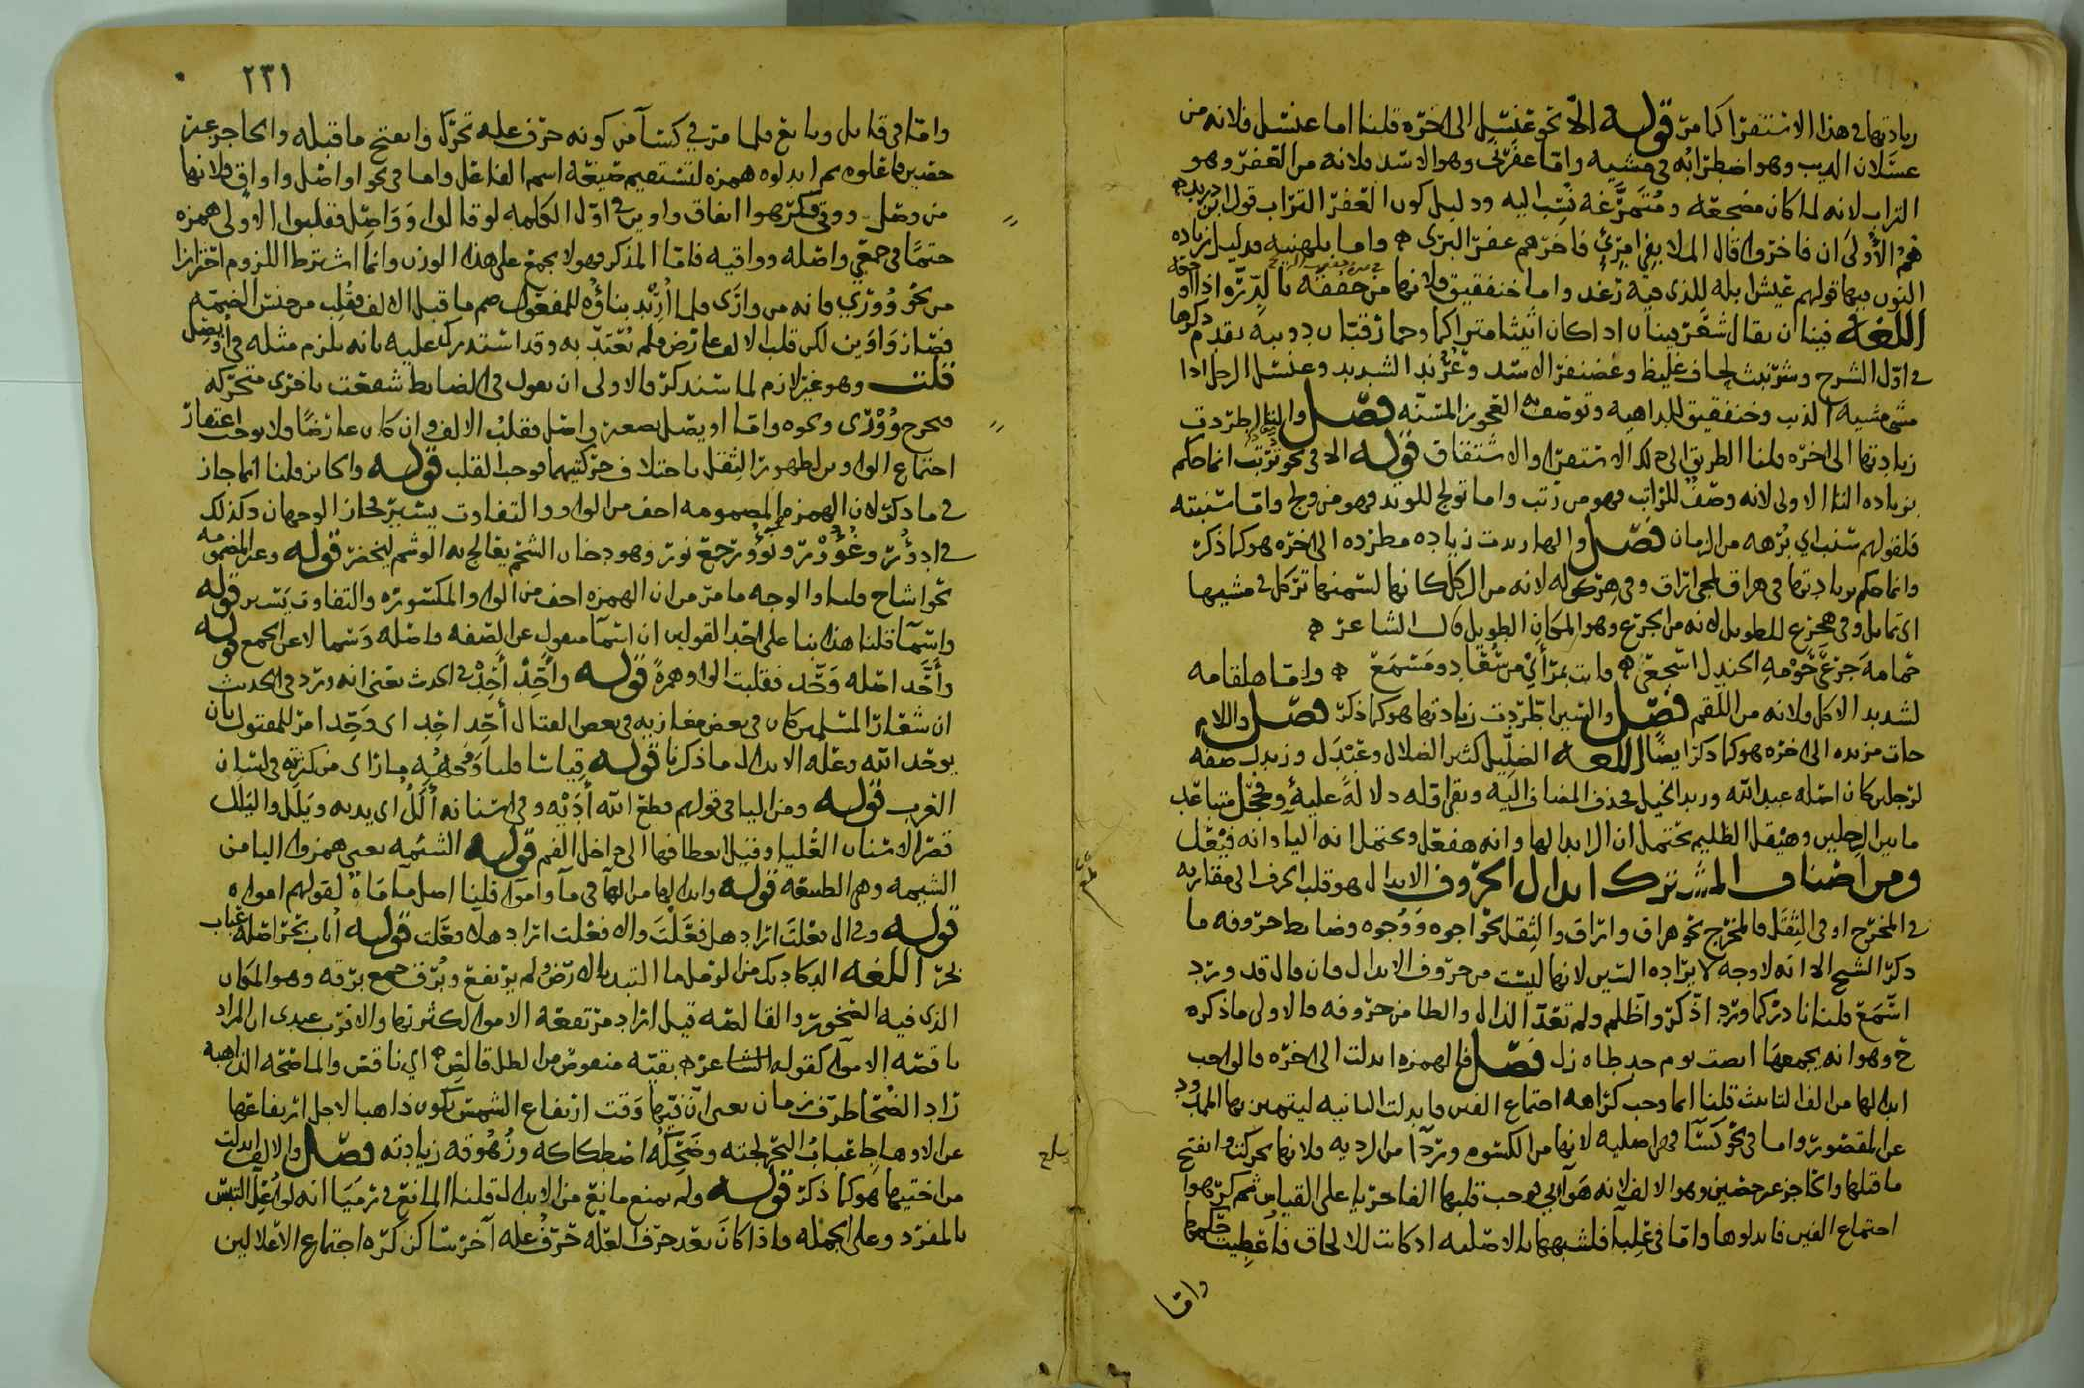 زيادتها في هذا الاستقرا كما مر قوله الا نحو عنسل الى اخره قلنا اما عنسل فلانه من
عسلان الذيب وهو اضطرابه في مشيه واما عفرنى وهو الاسد فلانه من العفر وهو
التراب لانه لما كان مضجعه ومتمرغه نسب اليه ودليل كون العفر التراب قول ابن دريد
هم الأولى ان فاخروا قال العلا بفي امرئ فاخرهم عفر البرى واما بلهنيه فدليل زياده
النون فيها قولهم عيش ابله للذي فيه رغد واما خنفقيق فلانها من خفقه
اللغه فينان يقال شعر فينان اذا كان اثيثا متراكما وحمار قبان دويبه تقدم ذكرها
في اول الشرح وشرنبث لجاف غليظ وغضنفر الاسد وعرند الشديد وعنسل الرجل اذا
مشى مشيه الذيب وخنفقيق للداهيه وتوصف به العجوز المسنه فصل والتا اطردت
زيادتها الى اخره قلنا الطريق الى ذلك الاستقرا والاشتقاق قوله الا في نحو ترتب انما حكم
بزياده التا الاولى لانه وصف للراتب فهو من رتب واما تولج للولد فهو من ولج واما سنبته
فلقولهم سنب اي برهه من الزمان فصل والها زيدت زياده مطرده الى اخره هو كما ذكر
وانما حكم بزيادتها في هراق لمجي اراق وفي هركوله لانه من الركل كانها لسمنها تركل في مشيها
اي تمايل وفي هجرع للطويل لانه من الجرع وهو المكان الطويل قال الشاعر
حمامه جرعى حومه الجندل اسجعي وانت بمرأى من سعاد ومسمع واما هلقامه
لشديد الاكل ولانه من اللقم فصل والسين اطردت زيادتها هو كما ذكر فصل واللام
جات مزيده الى اخره هو كما ذكر ايضا اللغه الضليل كثير الضلال وعبدل وزيدل صفه
لرجلين كان اصله عبد الله وزيد الخيل فحذف المضاف اليه وبقي اقله دلاله عليه وفحجل متباعد
ما بين الرجلين وهيقل الظليم يحتمل ان الزايد الها وانه هفعل ويحتمل انه اليا وانه فيعل
ومن اصناف المشترك ابدال الحروف الابدال هو قلب الحرف الى مقاربه
في المخرج او في الثقل فالمخرج نحو هراق واراق والثقل نحو اجوه ووجوه وضابط حروفه ما
ذكر الشيخ الا انه لا وجه لايراده السين لانها ليست من حروف الابدال فان قال قد ورد
اسمع قلنا نادر كما ورد اذكر واظلم ولم تعد الذال والظا من حروفه فالاولى ما ذكره
خ وهو انه يجمعها انصت يوم جد طاه زل فصل فالهمزه ابدلت الى اخره فالواجب
ابدالها من الف التانيث قلنا انما وجب كراهه اجتماع الفين فابدلت الثانيه ليتميز بها الممدود
عن المقصور واما في نحو كسآ فهي اصليه لانها من الكسوه وردآ من الرديه فلانها تحركت وانفتح
ما قبلها والحاجز غير حصين وهو الالف لانه هوآئي فوجب قلبها الفا جريا على القياس ثم كرهوا
اجتماع الفين فابدلوها واما في علبآ فلشبهها بالاصليه اذ كانت للالحاق فاعطيت حكمها
واما
٢٣١
واما في قايل وبايع فلما مر في كسآ من كونه حرف عله تحرك وانفتح ما قبله والحاجز غير
حصين فاعلوه ثم ابدلوه همزه لتستقيم صيغه اسم الفاعل واما في نحو اواصل واواق فلانها
من وصل ووقى فكرهوا اتفاق واوين في اول الكلمه لو قالوا وواصل فقلبوا الاولى همزه
حتما في جمعي واصله وواقيه فاما المذكر فهو لا يجمع على هذا الوزن وانما اشترط اللزوم احترازا
من نحو ووري فانه من وارى فلما اريد بناؤه للمفعول ضم ما قبل الالف فقلب من جنس الضمه
فصار واوين لكن قلب الالف عارض فلم يعتد به وقد استدرك عليه بانه يلزم مثله في اويصل
قلت وهو غير لازم لما سنذكر فالاولى ان يقول في الضابط شفعت باخرى متحركه
فيخرج ووري ونحوه واما اويصل تصغير واصل فقلبت الالف وان كان عارضا فلا يوجب اغتفار
اجتماع الواوين لظهور الثقل باختلاف حركتيهما فوجب القلب قوله والجايز قلنا انما جاز
في ما ذكر لان الهمزه المضمومه اخف من الواو والتفاوت يسير فجاز الوجهان وكذلك
في ادؤر وغؤور ونؤور جمع نور وهو دخان الشحم يعالج به الوشم ليخضر قوله وغير المضمومه
نحو اشاح قلنا والوجه ما مر من ان الهمزه اخف من الواو المكسوره والتفاوت يسير قوله
واسمآ قلنا هذا بنا على احد القولين ان اسمآ منقول عن الصفه واصله وسما لا عن الجمع قوله
وأحد اصله وحد فقلبت الواو همزة قوله وأحِّد أحِّد في الحديث يعني انه ورد في الحديث
ان شعار المسلمين كان في بعض مغازيه في بعض القتال أحد احد اي وحد امر للمقتول بان
يوحد الله وعله الابدال ما ذكرنا قوله قياسا قلنا وجهه مازاى من كثرته في لسان
العرب قوله ومن اليا في قولهم قطع الله أديه وفي اسنانه ألل اي يديه ويلل واليلل
قصر الاسنان العليا وقيل انعطافها الى داخل الفم قوله الشئمه يعني همزوا اليا من
الشيمه وهي الطبيعه قوله وابدالها من الهآ في مآ وامواء قلنا اصل مآ ماه لقولهم امواه
قوله وفي أل فعلت اراد هل فعلت والا فعلت اراد هلا فعلت قوله أباب بحر اصله عباب
بحر اللغه الدكاديك من الرمل ما التبد بالارض ولم يرتفع وبرق جمع برقه وهو المكان
الذي فيه الصخور والقالصه قيل اراد مرتفعه الامواه لكثرتها والاقرب عندي ان المراد
ناقصه الاموآ كقوله الشاعر بقيه منقوص من الظل قالص اي ناقص والماضحه الذاهبه
راد الضحا طرف زمان يعني ان فيها وقت ارتفاع الشمس يكون ذاهبا لاجل ارتفاعها
عباب البحر لجته وضحكه اضطكاكه وزهوقه زيادته فصل والالف ابدلت
من اختيها هو كما ذكر قوله ولم يمنع مانع من الابدال قلنا المانع في رميا انه لو اعل التبس
بالمفرد وعلى الجمله فاذا كان بعد حرف العله حرف عله آخر ساكن كره اجتماع الاعلالين